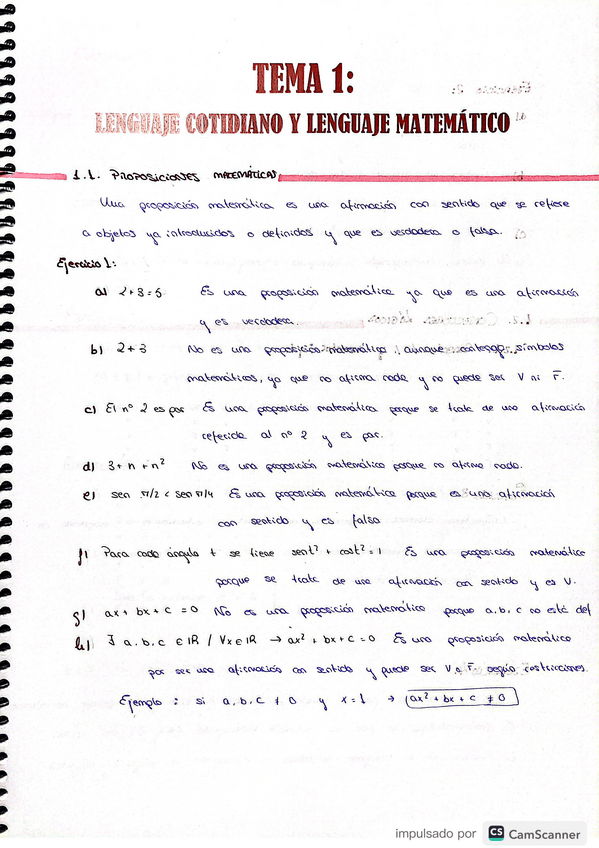 TEMA 1:
LENGUAJE COTIDIANO Y LENGUAJE MATEMÁTICO
1.1. PROPOSICIONES MATEMÁTICAS
Una proposición matemática es una afirmación con sentido que se refiere
a objetos ya introducidos o definidos y que es verdadera o falsa.
Ejercicio 1:
a) 2+3=5 Es una proposición matemática ya que es una afirmación
y es verdadera.
b) 2+3 No es una proposición matemática, aunque contenga símbolos
matemáticos, ya que no afirma nada y no puede ser V ni F.
c) El nº 2 es par Es una proposición matemática porque se trata de una afirmación
referida al nº 2 y es par.
d) 3+n+n² No es una proposición matemática porque no afirma nada.
e) sen π/2 < sen π/4 Es una proposición matemática porque es una afirmación
con sentido y es falsa
f) Para cada ángulo t se tiene sent² + cost² = 1 Es una proposición matemática
porque se trata de una afirmación con sentido y es V.
g) ax + bx + c = 0 No es una proposición matemática porque a, b, c no está def
h) ∃ a, b, c ∈ IR / ∀x ∈ IR → ax² + bx + c = 0 Es una proposición matemática
por ser una afirmación con sentido y puede ser V o F según restricciones.
Ejemplo : si a, b, c ≠ 0 y x = 1 → ax² + bx + c ≠ 0
impulsado por CS CamScanner